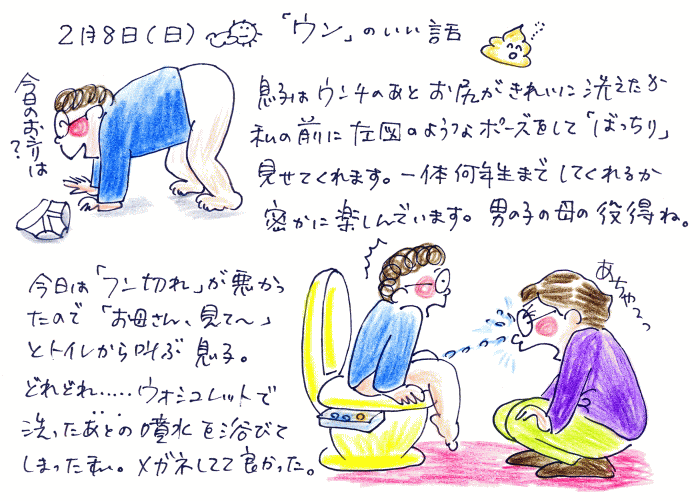 2月8日(日) 「ウン」のいい話
今日のお尻は?
息子はウンチのあとお尻がきれいに洗えたか
私の前に左図のようなポーズをして「ばっちり」
見せてくれます。一体何年生までしてくれるか
密かに楽しんでいます。男の子の母の役得ね。
今日は「フン切れ」が悪かっ
たので「お母さん、見て〜」
とトイレから叫ぶ息子。
どれどれ.....ウォシュレットで
洗ったあとの噴水を浴びて
しまった私。メガネしてて良かった。
あちゃ〜っ